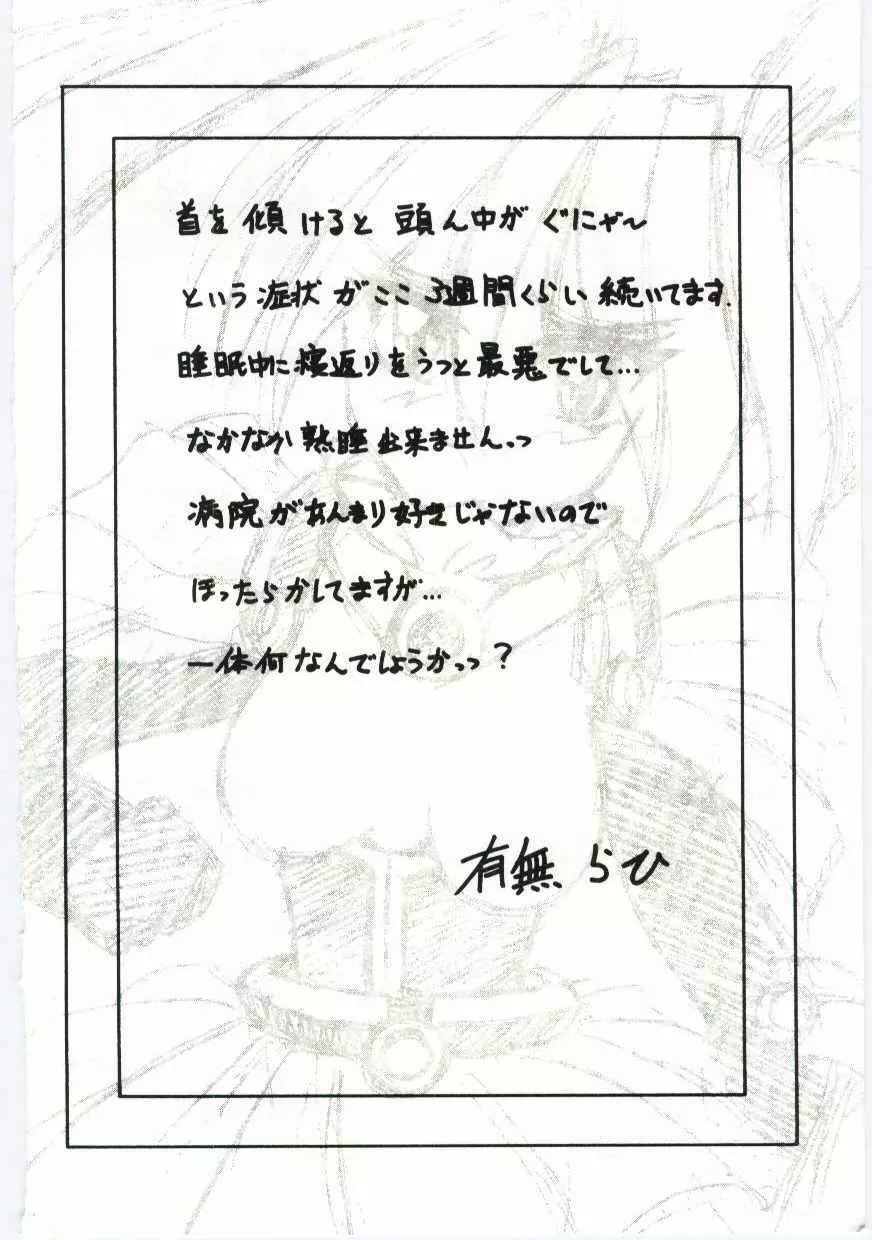 首を傾けると頭ん中がぐにゃ〜
という症状がここ3週間くらい続いてます.
睡眠中に寝返りをうつと最悪でして…
なかなか熟睡出来ませんっっ
病院があんまり好きじゃないので
ほったらかしてますが…
一体何なんでしょうかっっ?
有無らひ